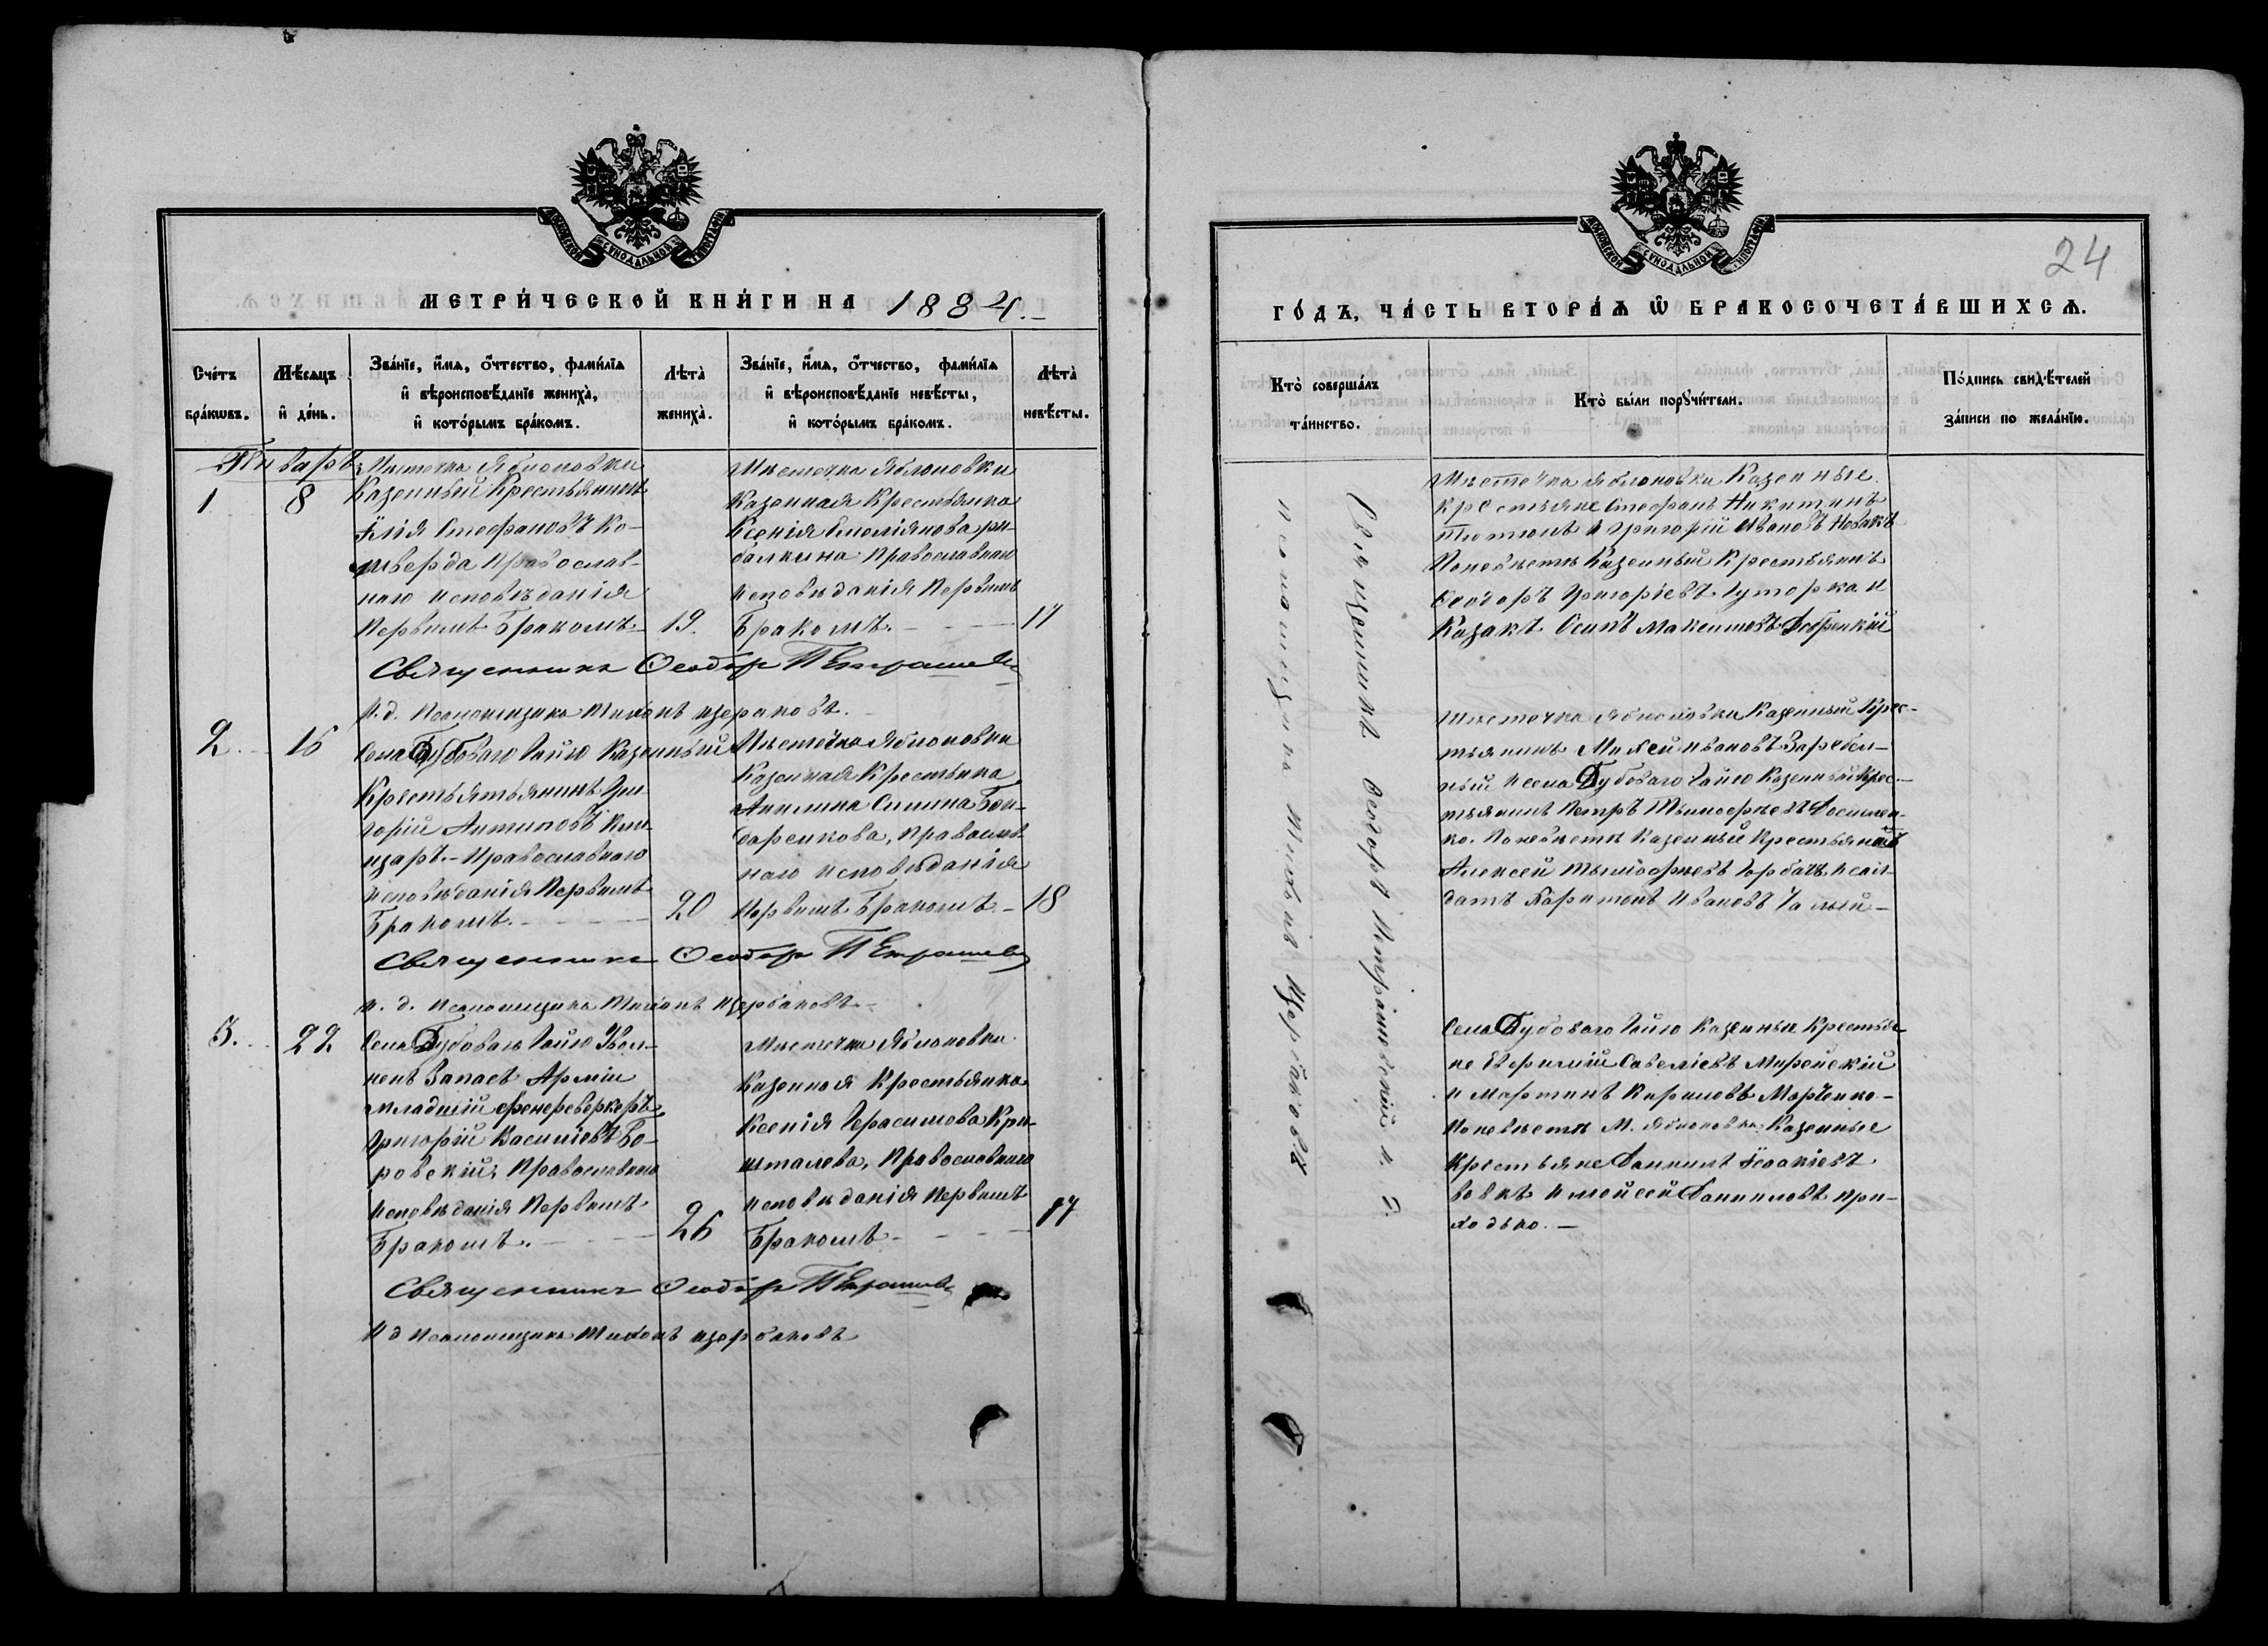 МЕТРИ́ЧЕСКОЙ КНИ́ГИ НА 1884.
Сче́тъ бра́кωвъ.
Мѣ́сяцъ и҆ де́нь.
Зва́нїе, и҆́мѧ, ѻ҆́тчество, фами́лїѧ
и҆ вѣроисповѣ́данїе жениха̀,
и҆ кото́рымъ бра́комъ.
Лѣта̀ жениха̀.
Зва́нїе, и҆́мѧ, ѻ҆́тчество, фами́лїѧ
и҆ вѣроисповѣ́данїе невѣ́сты,
и҆ кото́рымъ бра́комъ.
Лѣта̀ невѣ́сты.
Январь
1
8
Мѣстечка Яблоновки
Казенный Крестьянинъ
Илія Стефановъ Ко-
Православ-
наго исповѣданія
Первымъ Бракомъ
19.
Мѣстечка Яблоновки
Казенная Крестьянка
Ксенія Емеліянова Ри-
балкина Православнаго
исповѣданія Первымъ
Бракомъ.
17
Священникъ Ѳеодоръ
И. д. Псаломщика Тихонъ Щербаковъ.
2.
15
Села Дубоваго Гайю Казенный
Крестьятьянинъ Гри-
горій Антиповъ
Православнаго
исповѣданія Первымъ
Бракомъ.
20
Мѣстечка Яблоновки
Казенная Крестьянка
Акилина Силина Бон-
даренкова, Православ-
наго исповѣданія
Первымъ Бракомъ
18
Священникъ Ѳеодоръ
И. д. Псаломщика Тихонъ Щербаковъ
3.
22
Села Дубоваго Гайю Уволл-
ненъ Запасъ Арміи
младшій фенерверкеръ
Григорій Василіевъ Бо-
ровскій, Православнаго
исповѣданія Первымъ
Бракомъ.
26
Мѣстечка Яблоновки
Казенная Крестьянка
Ксенія Герасимова Кри-
шталева, Православнаго
исповѣданія Первымъ
Бракомъ
17
Священникъ Ѳеодоръ
И д Псаломщика Тихонъ Щербаковъ
24
ГО́ДЪ, ЧА́СТЬ ВТОРА́Ѧ Ѽ БРАКОСОЧЕТА́ВШИХСѦ.
Кто̀ соверша́лъ
та́инство.
Кто̀ бы́ли порꙋчи́тели.
По́дпись свидѣ́телей
за́писи по жела́нїю.
Священникъ Ѳеодоръ И. Д.
псаломщика Тихонъ Щербаковъ
Мѣстечка Яблоновки Казенные
крестьяне Стефанъ Никитинъ
и Григорій Ивановъ Новакъ
По невѣстѣ Казенный Крестьянинъ
Ѳеодоръ Григоріевъ Гуторка и
Казакъ Осипъ Максимовъ
Мѣстечка Яблоновки Казенный Крес-
тьянинъ Ивановъ
и села Дубоваго Гайю Казенный Крес-
тьянинъ Петръ Тимофѣевъ
По невѣстѣ Казенный Крестьянинъ
Алексѣй Тимофѣевъ Горбачъ и сол-
датъ Харитонъ Ивановъ
Села Дубоваго Гайю Казенные Крестья-
не Евфимій Савеліевъ Мирскій
и Мартинъ Кириловъ Марченко
По невѣстѣ М. Яблоновки Казенные
Крестьяне Даниилъ Ісаакіевъ
Вовкъ и Моисей Данииловъ При-
ходько.
МОСКОВСКОЙ СѴНОДАЛЬНОЙ ТИПОГРАФІИ
МОСКОВСКОЙ СѴНОДАЛЬНОЙ ТИПОГРАФІИ